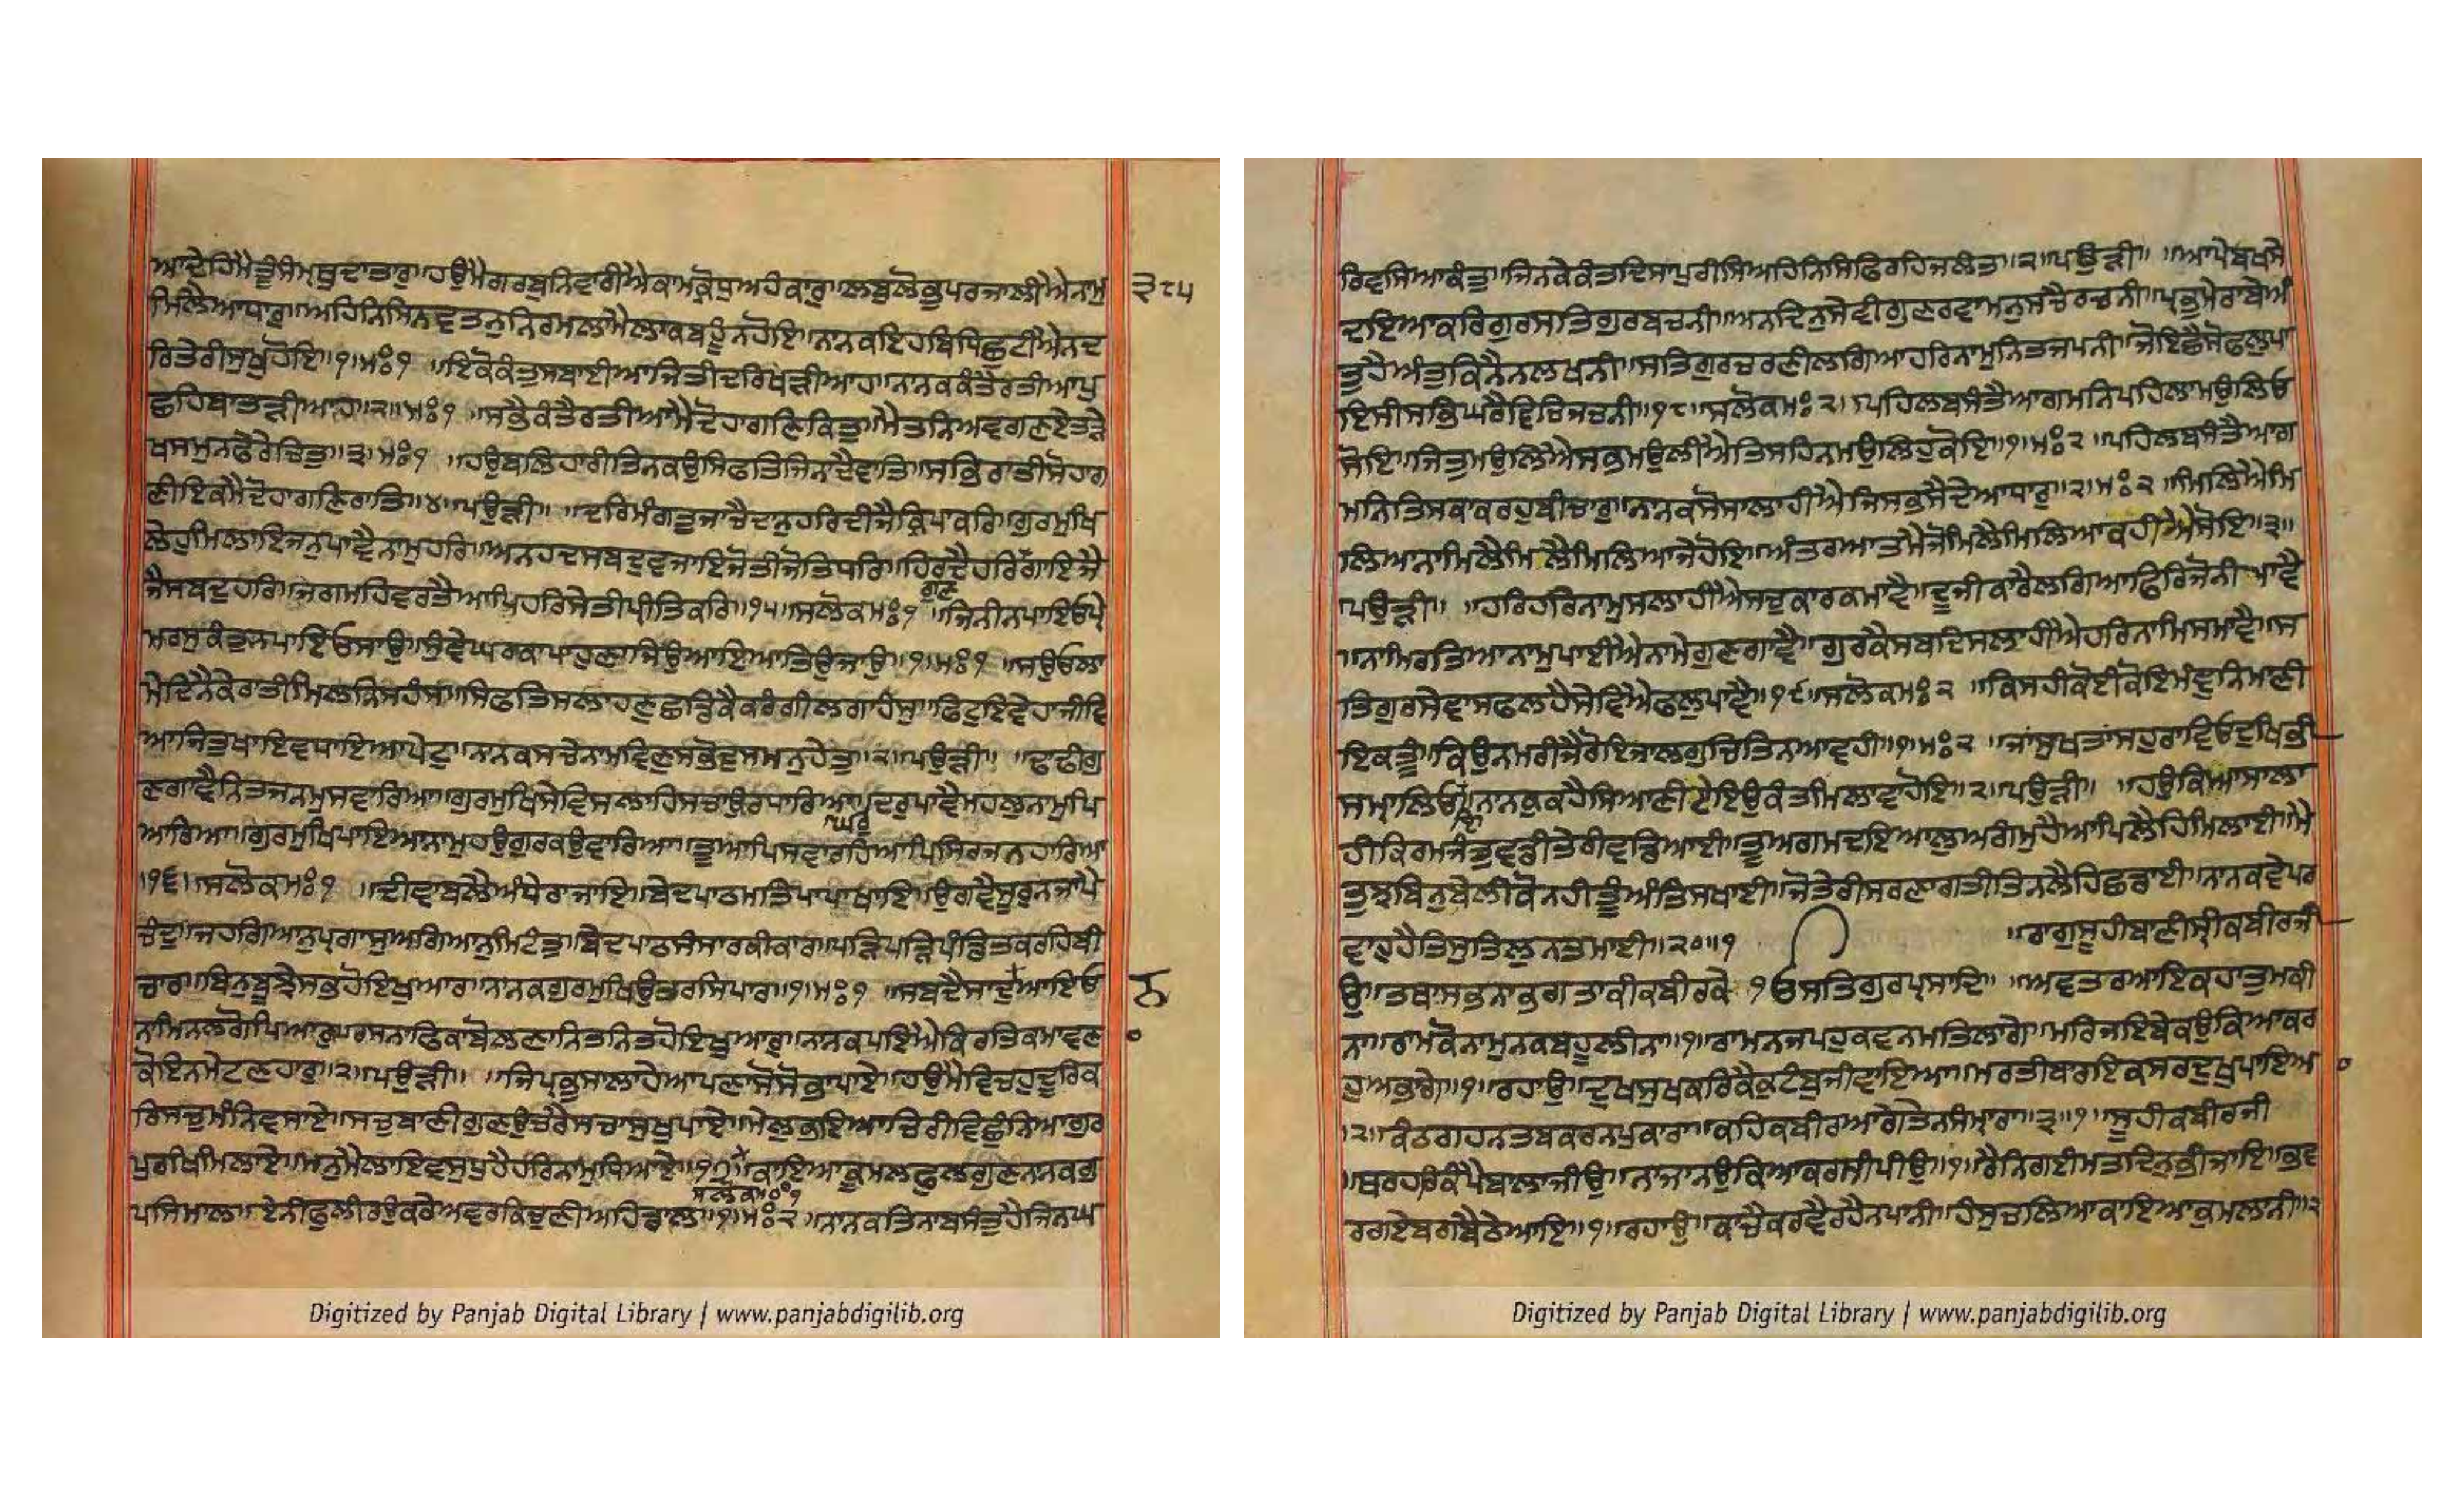 ਆਦੇਹਿਮੈਤੂੰਸੰਮ੍ਰਥੁਦਾਤਾਰੁ॥ਹਉਮੈਗਰਬੁਨਿਵਾਰੀਐਕਾਮੁਕ੍ਰੋਧੁਅਹੰਕਾਰੁ॥ਲਬੁਲੋਭੁਪਰਜਾਲੀਐਨਾਮੁ
੩੮੫
ਮਿਲੈਆਧਾਰੁ॥ਅਹਿਨਿਸਿਨਵਤਨੁਨਿਰਮਲਾਮੈਲਾਕਬਹੂੰਨਹੋਇ॥ਨਾਨਕਇਹਬਿਧਿਛੁਟੀਐਨਦ
ਰਿਤੇਰੀਸੁਖੁਹੋਇ॥੧॥ਮਃ੧ ॥ਇਕੋਕੰਤੁਸਬਾਈਆਜਿਤੀਦਰਿਖੜੀਆਹ॥ਨਾਨਕਕੰਤੈਰਤੀਆਪੁ
ਛਹਿਬਾਤੜੀਆਹ॥੨॥ਮਃ੧ ॥ਸਭੈਕੰਤੈਰਤੀਆਮੈਦੋਹਾਗਣਿਕਿਤੁ॥ਮੈਤਨਿਅਵਗਣਏਤੜੇ
ਖਸਮੁਨਫੇਰੇਚਿਤੁ॥੩॥ਮਃ੧ ॥ਹਉਬਲਿਹਾਰੀਤਿਨਕਉਸਿਫਤਿਜਿਨਾਦੈਵਾਤਿ॥ਸਭਿਰਾਤੀਸੋਹਾਗ
ਣੀਇਕਮੈਦੋਹਾਗਣਿਰਾਤਿ॥੪॥ਪਉੜੀ॥ ॥ਦਰਿਮੰਗਤੁਜਾਚੈਦਾਨੁਹਰਿਦੀਜੈਕ੍ਰਿਪਾਕਰਿ॥ਗੁਰਮੁਖਿ
ਲੇਹੁਮਿਲਾਇਜਨੁਪਾਵੈਨਾਮੁਹਰਿ॥ਅਨਹਦਸਬਦੁਵਜਾਇਜੋਤੀਜੋਤਿਧਰਿ॥ਹਿਰਦੈਹਰਿਗੁਣਗਾਇਜੈ
ਜੈਸਬਦੁਹਰਿ॥ਜਗਮਹਿਵਰਤੈਆਪਿਹਰਿਸੇਤੀਪ੍ਰੀਤਿਕਰਿ॥੧੫॥ਸਲੋਕਮਃ੧ ॥ਜਿਨੀਨਪਾਇਓਪ੍ਰੇ
ਮਰਸੁਕੰਤੁਨਪਾਇਓਸਾਉ॥ਸੁੰਞੇਘਰਕਾਪਾਹੁਣਾਜਿਉਆਇਆਤਿਉਜਾਉ॥੧॥ਮਃ੧ ॥ਸਉਓਲਾ
ਮੇਦਿਨੈਕੇਰਾਤੀਮਿਲਨਿਸਹੰਸ॥ਸਿਫਤਿਸਲਾਹਣੁਛਡਿਕੈਕਰੰਗੀਲਗਾਹੰਸੁ॥ਫਿਟੁਇਵੇਹਾਜੀਵਿ
ਆਜਿਤੁਖਾਇਵਧਾਇਆਪੇਟੁ॥ਨਾਨਕਸਚੇਨਾਮਵਿਣੁਸਭੋਦੁਸਮਨੁਹੇਤੁ॥੨॥ਪਉੜੀ॥ ॥ਢਾਢੀਗੁ
ਣਗਾਵੈਨਿਤਜਨਮੁਸਵਾਰਿਆ॥ਗੁਰਮੁਖਿਸੇਵਿਸਲਾਹਿਸਚਾਉਰਧਾਰਿਆ॥ਘਰੁਦਰੁਪਾਵੈਮਹਲੁਨਾਮੁਪਿ
ਆਰਿਆ॥ਗੁਰਮੁਖਿਪਾਇਆਨਾਮੁਹਉਗੁਰਕਉਵਾਰਿਆ॥ਤੂਆਪਿਸਵਾਰਹਿਆਪਿਸਿਰਜਨਹਾਰਿਆ
॥੧੬॥ਸਲੋਕਮਃ੧ ॥ਦੀਵਾਬਲੈਅੰਧੇਰਾਜਾਇ॥ਬੇਦਪਾਠਮਤਿਪਾਪਾਖਾਇ॥ਉਗਵੈਸੂਰੁਨਜਾਪੈ
ਚੰਦੁ॥ਜਹਗਿਆਨੁਪ੍ਰਗਾਸੁਅਗਿਆਨੁਮਿਟੰਤੁ॥ਬੇਦਪਾਠਸੰਸਾਰਕੀਕਾਰ॥ਪੜਿਪੜਿਪੰਡਿਤਕਰਹਿਬੀ
ਚਾਰ॥ਬਿਨੁਬੂਝੈਸਭਹੋਇਖੁਆਰ॥ਨਾਨਕਗੁਰਮੁਖਿਉਤਰਸਿਪਾਰ॥੧॥ਮਃ੧ ॥ਸਬਦੈਸਾਦੁਨਆਇਓ
ਨਾਮਿਨਲਗੋਪਿਆਰੁ॥ਰਸਨਾਫਿਕਾਬੋਲਣਾਨਿਤਨਿਤਹੋਇਖੁਆਰੁ॥ਨਾਨਕਪਇਐਕਿਰਤਿਕਮਾਵਣਾ
ਕੋਇਨਮੇਟਣਹਾਰੁ॥੨॥ਪਉੜੀ॥ ॥ਜਿਪ੍ਰਭੁਸਾਲਾਹੇਆਪਣਾਸੋਸੋਭਾਪਾਏ॥ਹਉਮੈਵਿਚਹੁਦੂਰਿਕ
ਰਿਸਚੁਮੰਨਿਵਸਾਏ॥ਸਚੁਬਾਣੀਗੁਣਉਚਰੈਸਚਾਸੁਖੁਪਾਏ॥ਮੇਲੁਭਇਆਚਿਰੀਵਿਛੁੰਨਿਆਗੁਰ
ਪੁਰਖਿਮਿਲਾਏ॥ਮਨੁਮੈਲਾਇਵਸੁਧੁਹੈਹਰਿਨਾਮੁਧਿਆਏ॥੧੭॥ਸਲੋਕਮਃ੧ਕਾਇਆਕੂਮਲਫੁਲਗੁਣਨਾਨਕਗੁ
ਪਸਿਮਾਲ॥ਏਨੀਫੁਲੀਰਉਕਰੇਅਵਰਕਿਚੁਣੀਅਹਿਡਾਲ॥੧॥ਮਃ੨ ॥ਨਾਨਕਤਿਨਾਬਸੰਤੁਹੈਜਿਨਘ
ਰਿਵਸਿਆਕੰਤੁ॥ਜਿਨਕੇਕੰਤਦਿਸਾਪੁਰੀਸੇਅਹਿਨਿਸਿਫਿਰਹਿਜਲੰਤ॥੨॥ਪਉੜੀ॥ ॥ਆਪੇਬਖਸੇ
ਦਇਆਕਰਿਗੁਰਸਤਿਗੁਰਬਚਨੀ॥ਅਨਦਿਨੁਸੇਵੀਗੁਣਰਵਾਮਨੁਸਚੈਰਚਨੀ॥ਪ੍ਰਭੁਮੇਰਾਬੇਅੰ
ਤੁਹੈਅੰਤੁਕਿਨੈਨਲਖਨੀ॥ਸਤਿਗੁਰਚਰਣੀਲਗਿਆਹਰਿਨਾਮੁਨਿਤਜਪਨੀ॥ਜੋਇਛੈਸੋਫਲੁਪਾ
ਇਸੀਸਭਿਘਰੈਵਿਚਿਜਚਨੀ॥੧੮॥ਸਲੋਕਮਃ੨॥ ॥ਪਹਿਲਬਸੰਤੈਆਗਮਨਿਪਹਿਲਾਮਉਲਿਓ
ਸੋਇ॥ਜਿਤੁਮਉਲਿਐਸਭਮਉਲੀਐਤਿਸਹਿਨਮਉਲਿਹੁਕੋਇ॥੧॥ਮਃ੨ ॥ਪਹਿਲਬਸੰਤੈਆਗ
ਮਨਿਤਿਸਕਾਕਰਹੁਬੀਚਾਰੁ॥ਨਾਨਕਸੋਸਾਲਾਹੀਐਜਿਸਭਸੈਦੇਆਧਾਰੁ॥੨॥ਮਃ੨ ॥ਮਿਲਿਐਮਿ
ਲਿਆਨਾਮਿਲੈਮਿਲੈਮਿਲਿਆਜੇਹੋਇ॥ਅੰਤਰਆਤਮੈਜੋਮਿਲੈਮਿਲਿਆਕਹੀਐਸੋਇ॥੩॥
॥ਪਉੜੀ॥ ॥ਹਰਿਹਰਿਨਾਮੁਸਲਾਹੀਐਸਚੁਕਾਰਕਮਾਵੈ॥ਦੂਜੀਕਾਰੈਲਗਿਆਫਿਰਿਜੋਨੀਪਾਵੈ
॥ਨਾਮਿਰਤਿਆਨਾਮੁਪਾਈਐਨਾਮੇਗੁਣਗਾਵੈ॥ਗੁਰਕੈਸਬਦਿਸਲਾਹੀਐਹਰਿਨਾਮਿਸਮਾਵੈ॥ਸ
ਤਿਗੁਰਸੇਵਾਸਫਲਹੈਸੇਵਿਐਫਲੁਪਾਵੈ॥੧੯॥ਸਲੋਕਮਃ੨ ॥ਕਿਸਹੀਕੋਈਕੋਇਮੰਞੁਨਿਮਾਣੀ
ਇਕਤੂ॥ਕਿਉਨਮਰੀਜੈਰੋਇਜਾਲਗੁਚਿਤਿਨਆਵਹੀ॥੧॥ਮਃ੨ ॥ਜਾਂਸੁਖਤਾਂਸਹੁਰਾਵਿਓਦੁਖਿਭੀ
ਸਮ੍ਹਾਲਿਓਇ॥ਨਾਨਕੁਕਹੈਸਿਆਣੀਏਇਉਕੰਤਮਿਲਾਵਾਹੋਇ॥੨॥ਪਉੜੀ॥ ॥ਹਉਕਿਆਸਾਲਾ
ਹੀਕਿਰਮਜੰਤੁਵਡੀਤੇਰੀਵਡਿਆਈ॥ਤੂਅਗਮਦਇਆਲੁਅਗੰਮੁਹੈਆਪਿਲੈਹਿਮਿਲਾਈ॥ਮੈ
ਤੁਝਬਿਨੁਬੇਲੀਕੋਨਹੀਤੂਅੰਤਿਸਖਾਈ॥ਜੋਤੇਰੀਸਰਣਾਗਤੀਤਿਨਲੈਹਿਛਡਾਈ॥ਨਾਨਕਵੇਪਰ
ਵਾਹੁਹੈਤਿਸੁਤਿਲੁਨਤਮਾਈ॥੨੦॥੧ ॥ਰਾਗੁਸੂਹੀਬਾਣੀਸ੍ਰੀਕਬੀਰਜੀ
ਉ॥ਤਥਾਸਭਨਾਭਗਤਾਕੀਕਬੀਰਕੇ ੧ਓਸਤਿਗੁਰਪ੍ਰਸਾਦਿ॥ ॥ਅਵਤਰਆਇਕਹਾਤੁਮਕੀ
ਨਾ॥ਰਾਮਕੋਨਾਮੁਨਕਬਹੂਲੀਨਾ॥੧॥ਰਾਮਨਜਪਹੁਕਵਨਮਤਿਲਾਗੇ॥ਮਰਿਜਇਬੇਕਉਕਿਆਕਰ
ਹੁਅਭਾਗੇ॥੧॥ਰਹਾਉ॥ਦੁਖਸੁਖਕਰਿਕੈਕੁਟੰਬੁਜੀਵਾਇਆ॥ਮਰਤੀਬਾਰਇਕਸਰਦੁਖੁਪਾਇਆ
॥੨॥ਕੰਠਗਹਨਤਬਕਰਨਪੁਕਾਰਾ॥ਕਹਿਕਬੀਰਆਗੇਤੇਨਸੰਮ੍ਹਾਰਾ॥੩॥੧॥ਸੂਹੀਕਬੀਰਜੀ
॥ਥਰਹਰਕੰਪੈਬਾਲਾਜੀਉ॥ਨਾਜਾਨਉਕਿਆਕਰਸੀਪੀਉ॥੧॥ਰੈਨਿਗਈਮਤਦਿਨੁਭੀਜਾਇ॥ਭਵ
ਰਗਏਬਗਬੈਠੇਆਇ॥੧॥ਰਹਾਉ॥ਕਾਚੈਕਰਵੈਰਹੈਨਪਾਨੀ॥ਹੰਸੁਚਲਿਆਕਾਇਆਕੁਮਲਾਨੀ॥੨
Digitized by Panjab Digital Library | www.panjabdigilib.org
Digitized by Panjab Digital Library | www.panjabdigilib.org